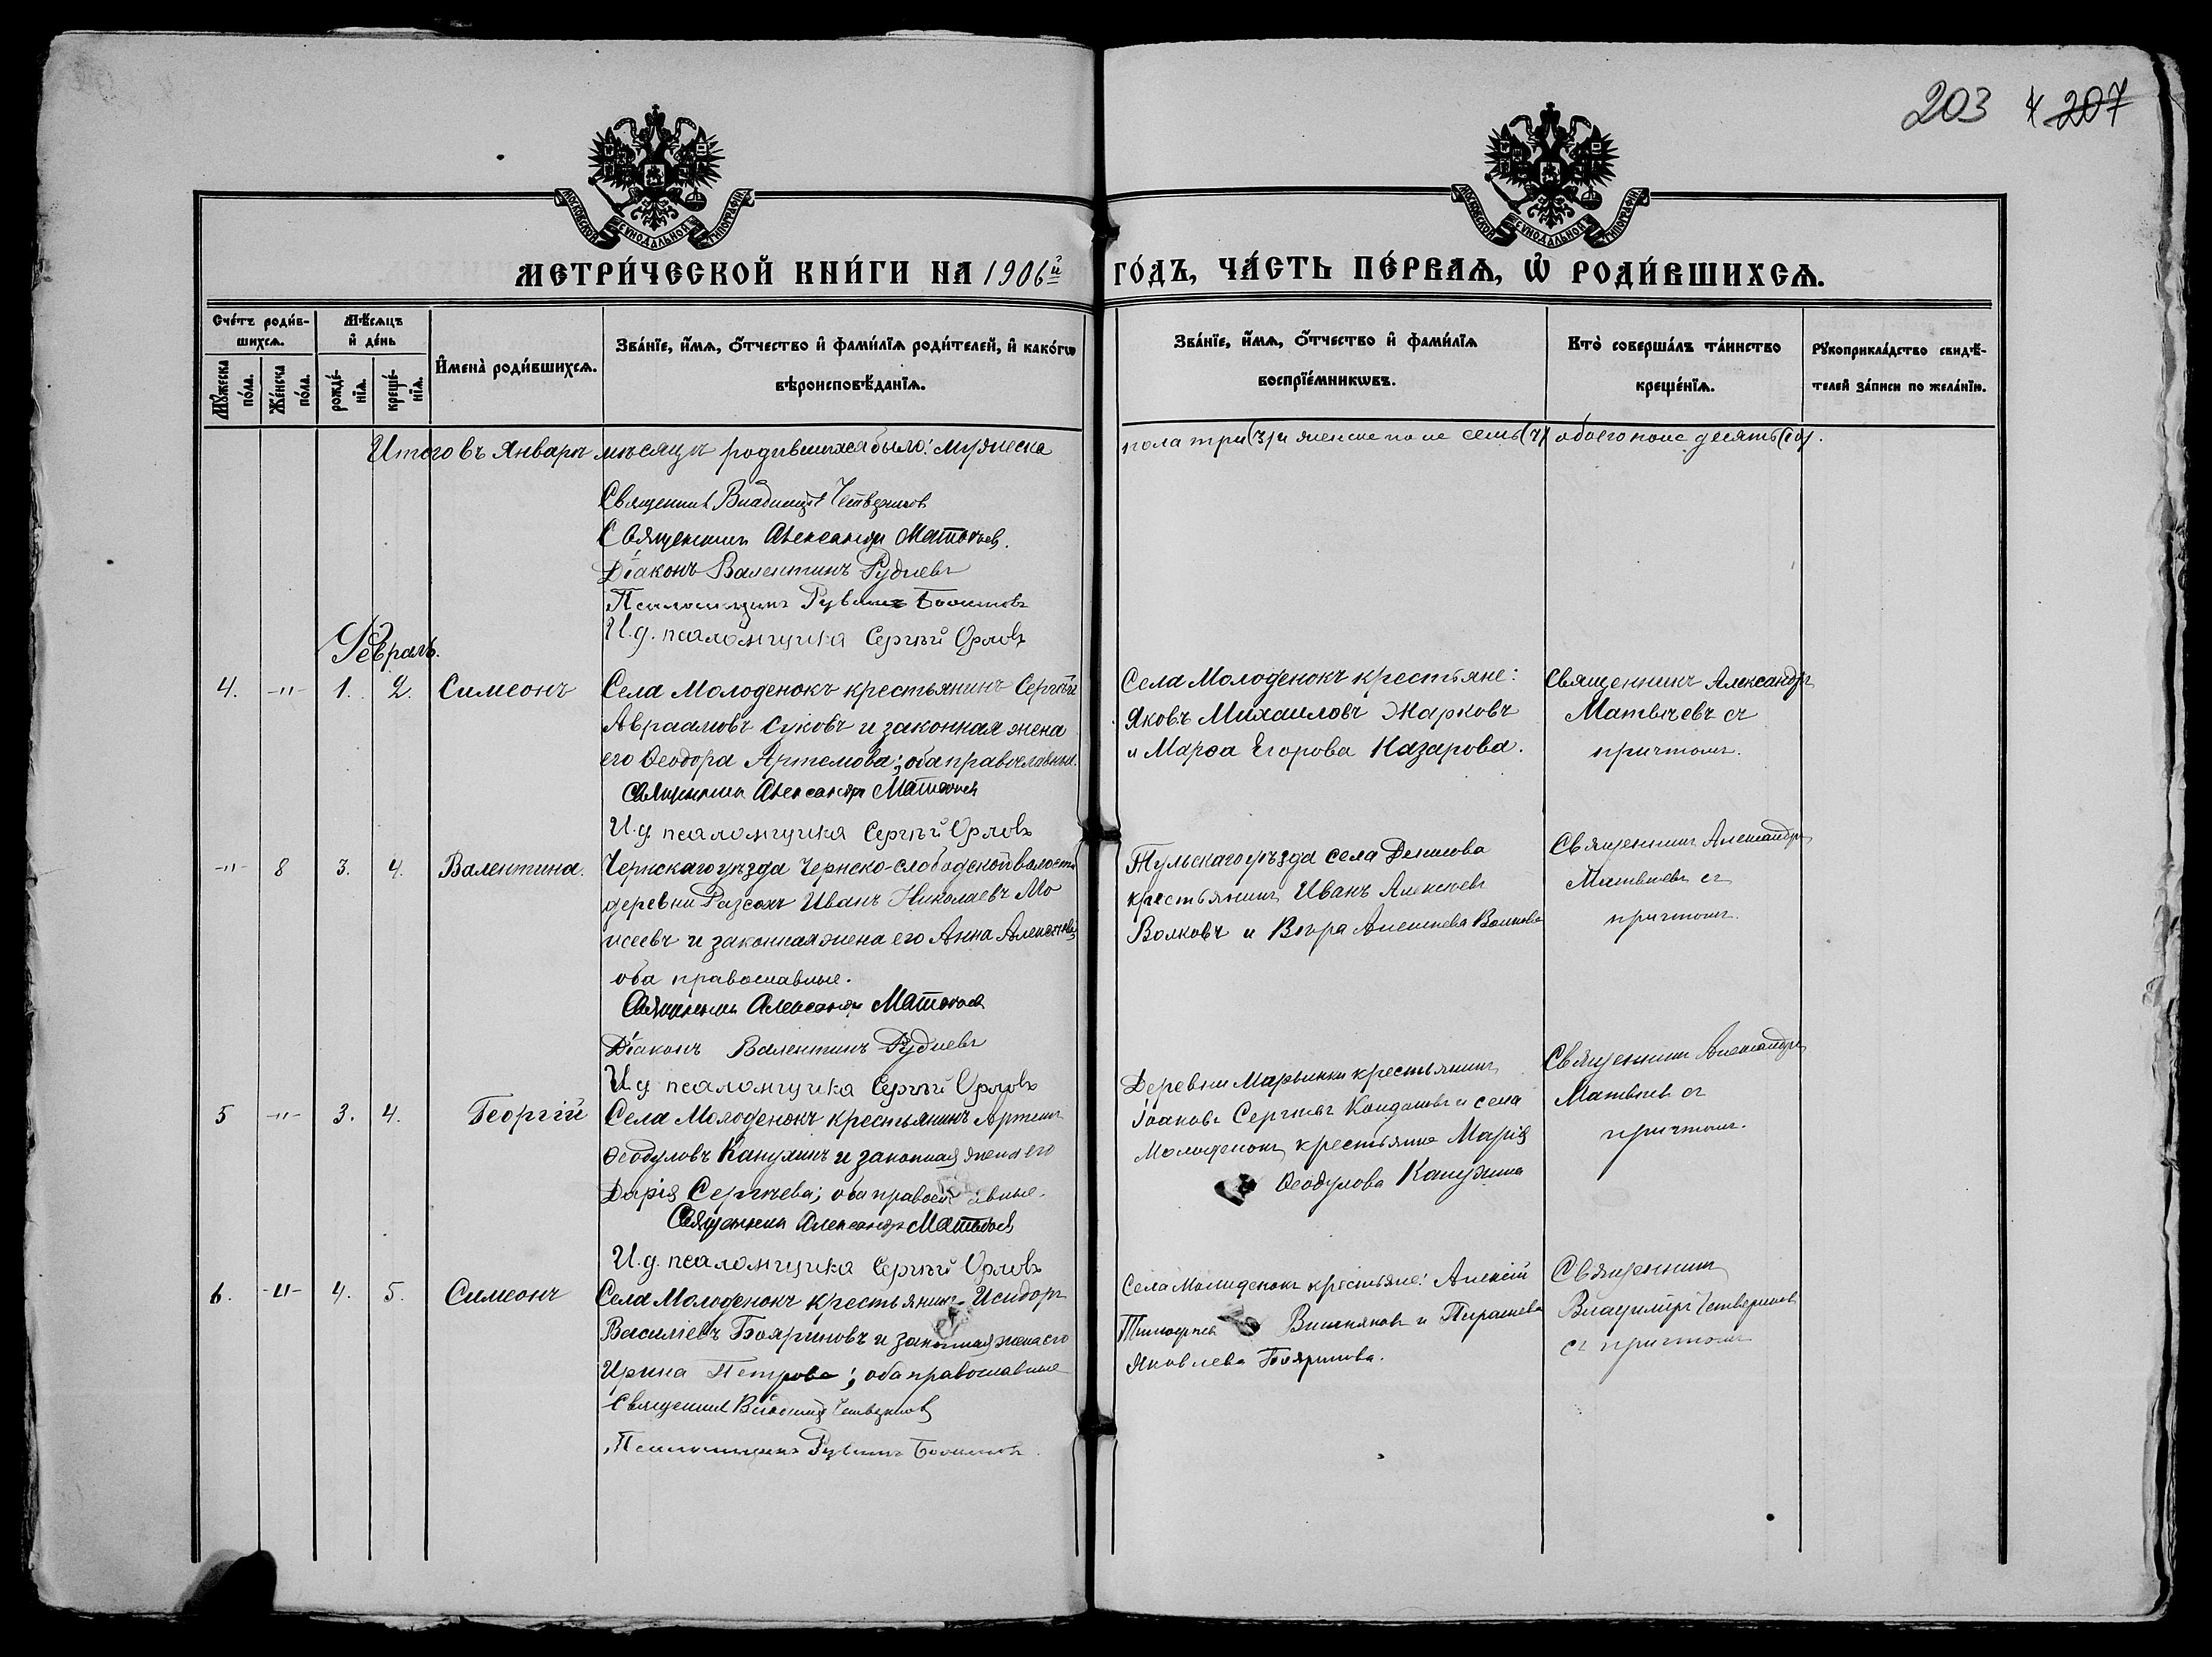 203 4 207
МОСКОВСКОЙ СѴНОДАЛЬНОЙ ТИПОГРАФІИ
МОСКОВСКОЙ СѴНОДАЛЬНОЙ ТИПОГРАФІИ
МЕТРИ́ЧЕСКОЙ КНИ́ГИ НА 1906й ГО́ДЪ, ЧА́СТЬ ПЕ́РВАѦ, Ѡ҆ РОДИ́ВШИХСѦ.
Сче́тъ роди́в-
шихсѧ.
Мꙋ́жеска по́ла.
Же́нска по́ла.
Мѣ́сѧцъ
и҆ де́нь
рожде́-
нїѧ.
креще́-
нїѧ.
И҆мена̀ роди́вшихсѧ.
Зва́нїе, и҆́мѧ, ѻ҆́тчество и҆ фами́лїѧ роди́телей, и҆ како́гѡ
вѣроисповѣ́данїѧ.
Зва́нїе, и҆́мѧ, ѻ҆́тчество и҆ фами́лїѧ
воспрїе́мникѡвъ.
Кто̀ соверша́лъ та́инство
креще́нїѧ.
Рꙋкоприкла́дство свидѣ́-
телей за́писи по жела́нїю.
Итого въ Январѣ мѣсяцѣ родившихся было: мужеска пола три (3) и женска пола семь (7) обоего пола десять (10).
Священник Владимір Четвериков
Священникъ Александръ Матвѣевъ.
Діаконъ Валентинъ Рудневъ
Псаломщикъ
И.д. псаломщика Сергѣй Орловъ
Февраль.
4. -"- 1. 2. Симеонъ
Села Молоденокъ крестьянинъ Сергѣй
Авраамовъ Суковъ и законная жена
его Ѳеодора Артемова; оба православные.
Священникъ Александръ Матвѣевъ
И.д. псаломщика Сергѣй Орловъ
Села Молоденокъ крестьяне:
Яковъ Михаиловъ Жарковъ
и Марѳа Егорова Казарова.
Священникъ Александръ
Матвѣевъ съ
причтомъ.
-"- 8 3. 4. Валентина.
Чернскаго уѣзда Чернско-слободской волости
деревни Разсохъ Иванъ Николаевъ Мо
исеевъ и законная жена его Анна Алексѣева
оба православные.
Священникъ Александръ Матвѣевъ
Діаконъ Валентинъ Рудневъ
И.д. псаломщика Сергѣй Орловъ
Тульскаго уѣзда села Денисова
крестьянинъ Иванъ Алексѣевъ
Волковъ и Вѣра Алексѣева Волкова
Священникъ Александръ
Матвѣевъ съ
причтомъ.
5 -"- 3. 4. Георгій
Села Молоденокъ крестьянинъ Артемій
Ѳеодуловъ Капухинъ и законная жена его
Дарія Сергѣева; оба православные.
Священникъ Александръ Матвѣевъ
И.д. псаломщика Сергѣй Орловъ
Деревни Марьинки крестьянинъ
Іоаковъ Сергѣевъ и села
Молоденокъ крестьянка Марія
Ѳеодулова Капухина
Священникъ Александръ
Матвѣевъ съ
причтомъ.
6. -"- 4. 5. Симеонъ
Села Молоденокъ крестьянинъ Исидоръ
Василіевъ Бояриновъ и законная жена его
Ирина Петрова; оба православные
Священник Владимір Четвериков
Псаломщикъ
Села Молоденокъ крестьяне: Алексій
Тимофеевъ Вишняковъ и
Яковлева Бояринова.
Священникъ
Владиміръ Четвериковъ
съ причтомъ